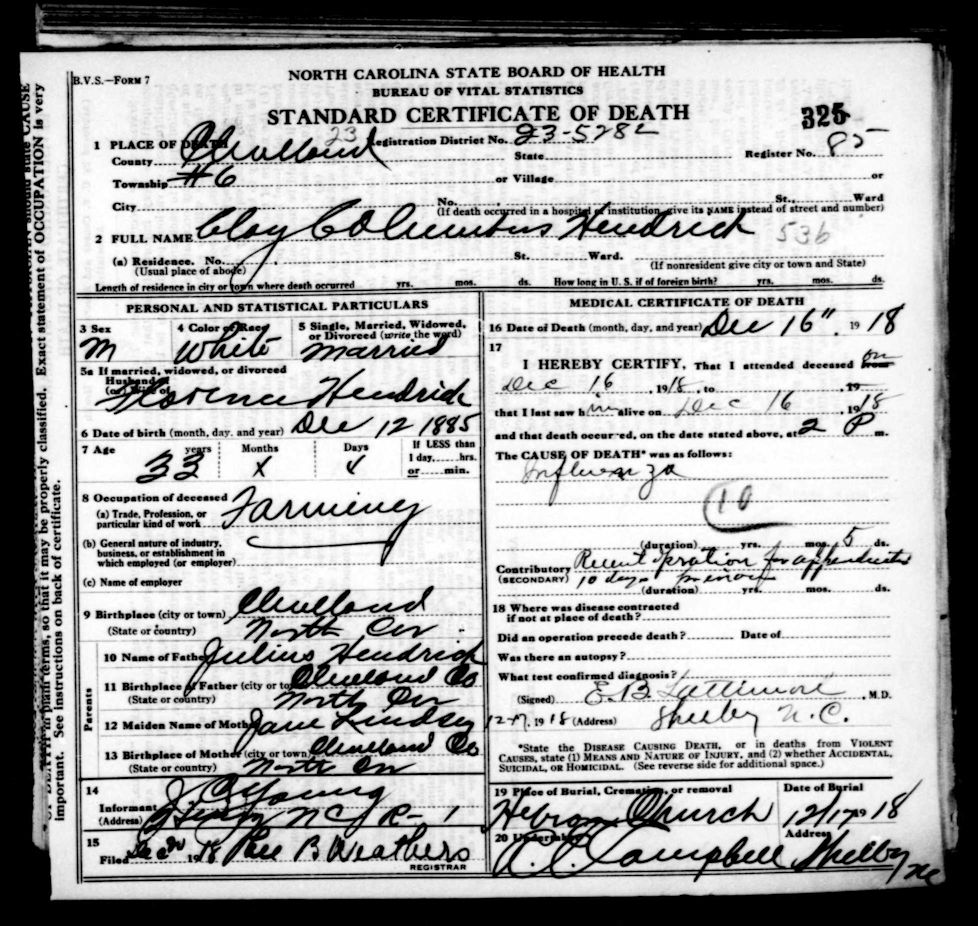 B.V.S.—FORM 7
NORTH CAROLINA STATE BOARD OF HEALTH
BUREAU OF VITAL STATISTICS
STANDARD CERTIFICATE OF DEATH
325
1 PLACE OF DEATH 23 Registration District No. 23-5282
County Cleveland State Register No. 85
Township #6 or Village or
City No. St., Ward
(If death occurred in a hospital or institution, give its NAME instead of street and number)
2 FULL NAME Clay Columbus Hendrick 536
(a) Residence. No. St. Ward.
(Usual place of abode) (If nonresident give city or town and State)
Length of residence in city or town where death occurred yrs. mos. ds. How long in U. S. if of foreign birth? yrs. mos. ds.
PERSONAL AND STATISTICAL PARTICULARS
3 Sex 4 Color or Race 5 Single, Married, Widowed, or Divorced (write the word)
M White Married
5a If married, widowed, or divorced
Husband of
(or) Wife of Florence Hendrick
6 Date of birth (month, day, and year) Dec 12 1885
7 Age years Months Days If LESS than
1 day, hrs.
33 x 4 or min.
8 Occupation of deceased
(a) Trade, Profession, or
particular kind of work Farming
(b) General nature of industry,
business, or establishment in
which employed (or employer)
(c) Name of employer
9 Birthplace (city or town) Cleveland
(State or country) North Car
Parents
10 Name of Father Julius Hendrick
11 Birthplace of Father (city or town) Cleveland Co
(State or country) North Car
12 Maiden Name of Mother Jane Lindsey
13 Birthplace of Mother (city or town) Cleveland Co
(State or country) North Car
14
Informant J C Young
(Address) Shelby N C R-1
15
Filed 1918 B Weathers
REGISTRAR
MEDICAL CERTIFICATE OF DEATH
16 Date of Death (month, day, and year) Dec 16" 1918
17
I HEREBY CERTIFY, That I attended deceased from on
Dec 16, 1918, to 19
that I last saw him alive on Dec 16, 1918
and that death occurred, on the date stated above, at 2 P m.
The CAUSE OF DEATH* was as follows:
Influenza
10
(duration) yrs. mos. 5 ds.
Contributory Recent opration for appendicitis
(SECONDARY) 10 days previous
(duration) yrs. mos. ds.
18 Where was disease contracted
if not at place of death?
Did an operation precede death? Date of
Was there an autopsy?
What test confirmed diagnosis?
(Signed) E B Lattimore, M.D.
12-17, 1918 (Address) Shelby N.C.
*State the DISEASE CAUSING DEATH, or in deaths from VIOLENT
CAUSES, state (1) MEANS AND NATURE OF INJURY, and (2) whether ACCIDENTAL,
SUICIDAL, or HOMICIDAL. (See reverse side for additional space.)
19 Place of Burial, Cremation, or removal Date of Burial
Hebron Church 12/17 1918
20 Undertaker Address
A. C. Campbell Shelby NC
CAUSE
OF DEATH in plain terms, so that it may be properly classified. Exact statement of OCCUPATION is very
important. See instructions on back of certificate.